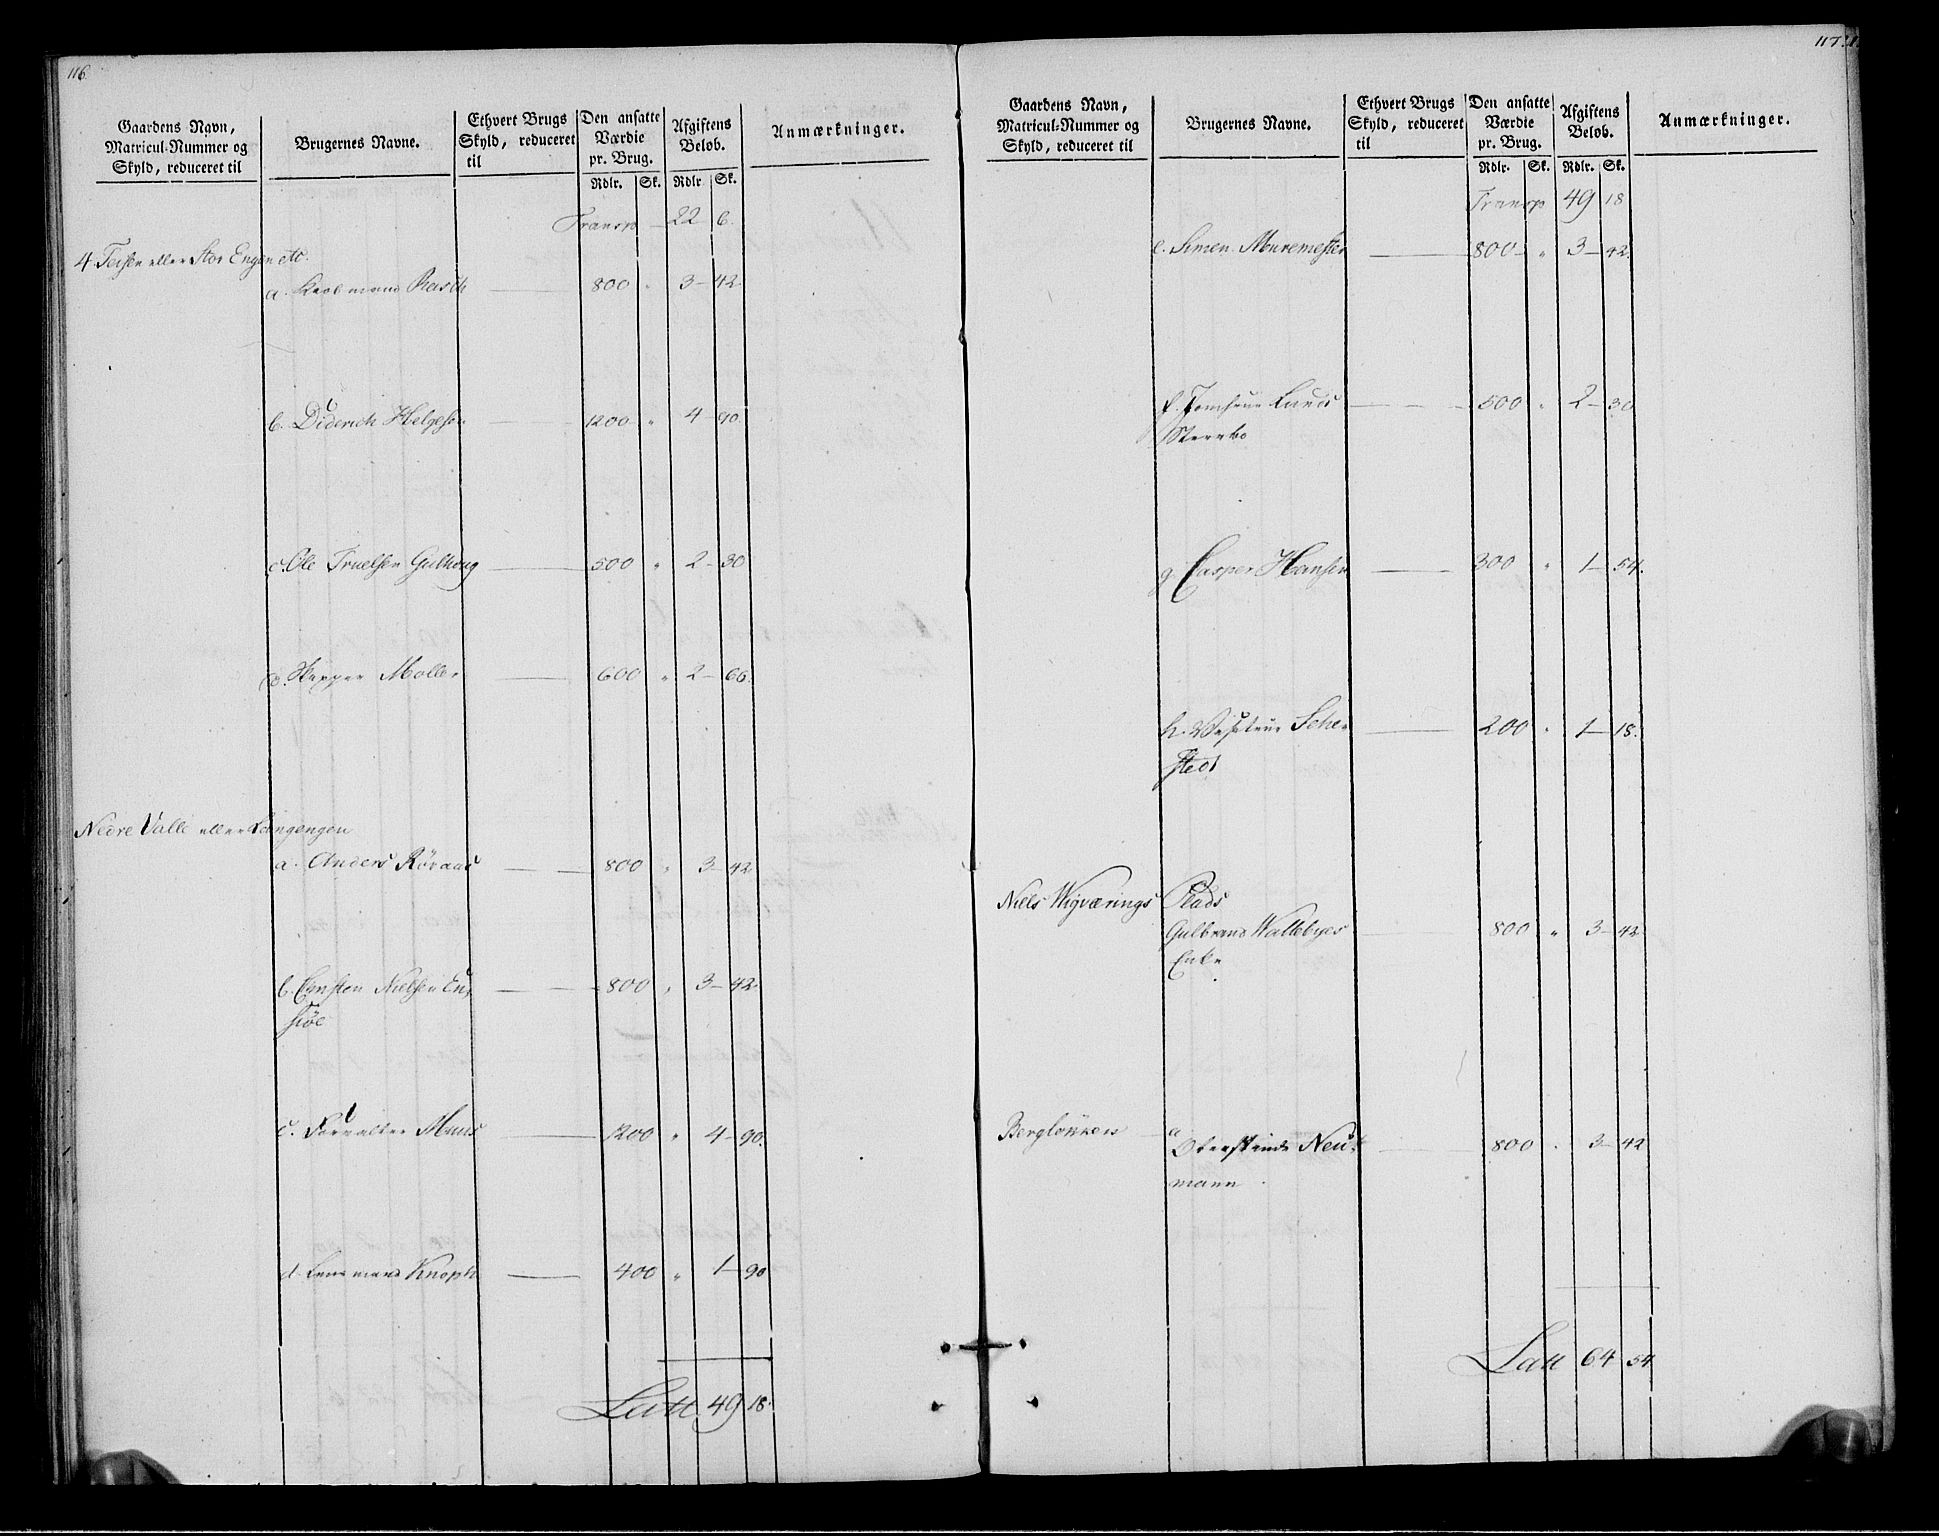 116.
Gaardens Navn, Matricul-Nummer og Skyld, reduceret til
Brugernes Navne.
Ethvert Brugs Skyld, reduceret til
Den ansatte Værdie pr. Brug.
Afgiftens Beløb.
Anmærkninger.
Rdlr. Sk. Rdlr. Sk.
Transp 22 6.
4. Teisen eller Stor Engen etc.
a. Kiøbmand Rasch 800 " 3 42.
b. Diderich Helgesen 1200 " 4 90.
c. Ole Truelsen Gulhoug 500 " 2 30
d. Skipper Moller 600 " 2 66.
Nedre Valle eller Langengen
a. Anders Røraas 800 " 3 42
b. Nielsen En-
siøe 800 " 3 42.
c. Forvalter Muus 1200 " 4 90.
d. Lensmand Knoph 400 " 1 90
Latt 49 18.
117.
Gaardens Navn, Matricul-Nummer og Skyld, reduceret til
Brugernes Navne.
Ethvert Brugs Skyld, reduceret til
Den ansatte Værdie pr. Brug.
Afgiftens Beløb.
Anmærkninger.
Rdlr. Sk. Rdlr. Sk.
Transp 49 18
e. Simen Muremester 800 " 3 42.
f. Jomfrue Lunds
Sterbo 500 " 2 30
g. Casper Hansen 300 " 1 54.
h. 200 " 1 18.
sted
Niels Wigværings Plads
Gulbrand Wallebyes
Enke 800 " 3 42
Bergløkken a
Neu-
mann 800 " 3 42
Latt 64 54